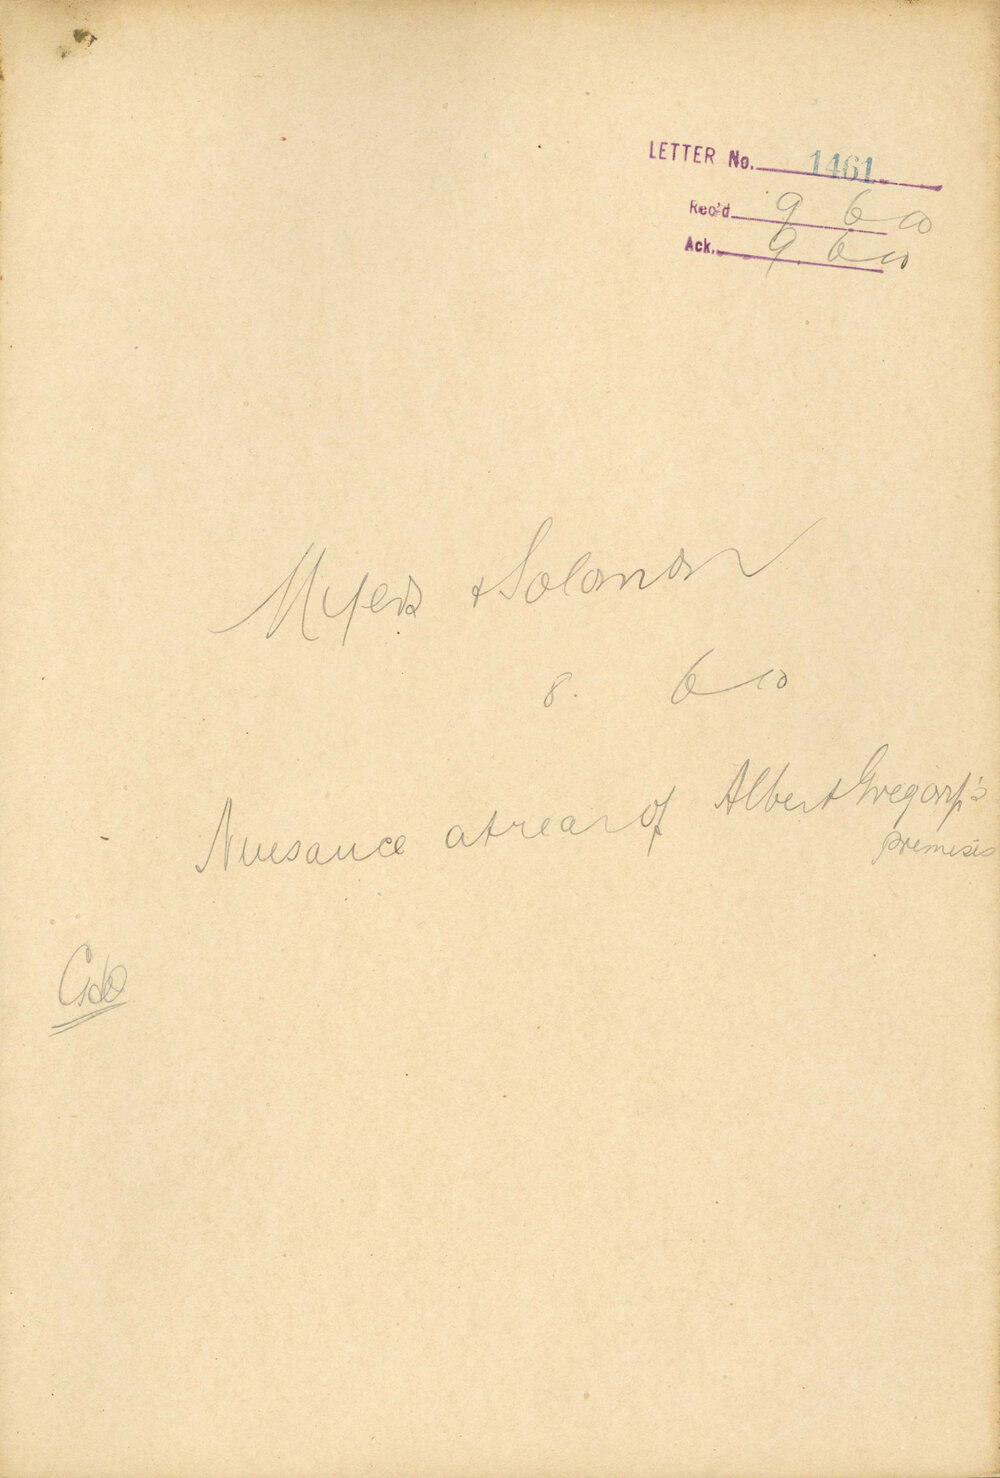 LETTER No. 1461
Rec'd 9 6 10
Ack. 9. 6 10
Myers & Solomon
8. 6 10
Nuisance at rear of Albert Gregory's
premises